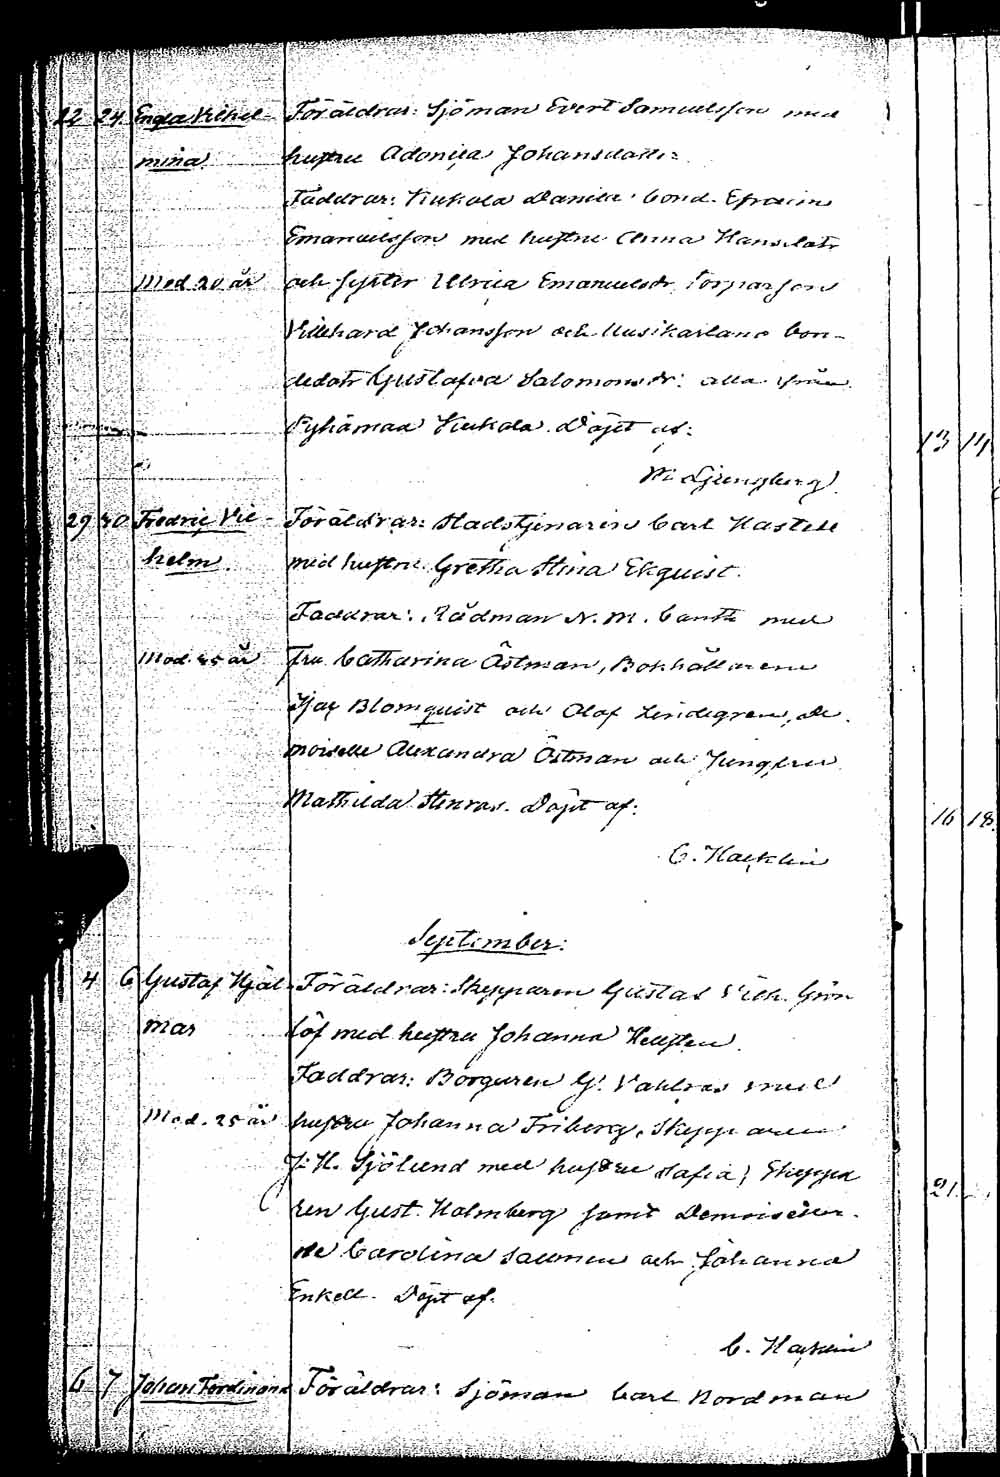 22 24 Engla Vilhel- Föräldrar: Sjöman Evert Samuelsson med
mina hustru Adonica Johansdotter
Faddrar: Kukola Danila bond. Efraim
Emanuelsson med hustru Anna Hansdotr
Mod. 20 år och syster Ulrica Emanuelsdr, Torparson
Villehard Johansson och Uusikartano bon-
dedotr Gustafva Salomonsdr: alla ifrån
Pyhämaa Kukola. Döpt af:
Ljungberg
29 30 Fredric Vil- Föräldrar: Stadstjenaren Carl Hastell
helm med hustru Gretha Stina Ekquist.
Faddrar: Rådman N. M. Canth med
Mod. 45 år fru Catharina Östman, Bokhållarene
Isac Blomquist och Olof Lindegren, De-
moiselle Alexandra Östman och Jungfru
Mathilda Stenroos. Döpt af:
C. Hacklin
September:
4 6 Gustaf Hjal- Föräldrar: Skepparen Gustaf Vilh. Grön
mar löf med hustru Johanna Hellsten.
Faddrar: Borgaren G. Vahlroos med
Mod. 25 år hustru Johanna Friberg, Skepparen
J. H. Sjölund med hustru Safia, Skeppa
ren Gust. Holmberg samt Demoiseller-
ne Carolina Salmen och Johanna
Enkell. Döpt af:
C. Hacklin
6 7 Johan Ferdinand Föräldrar: Sjöman Carl Nordman
13 14
16 18
21